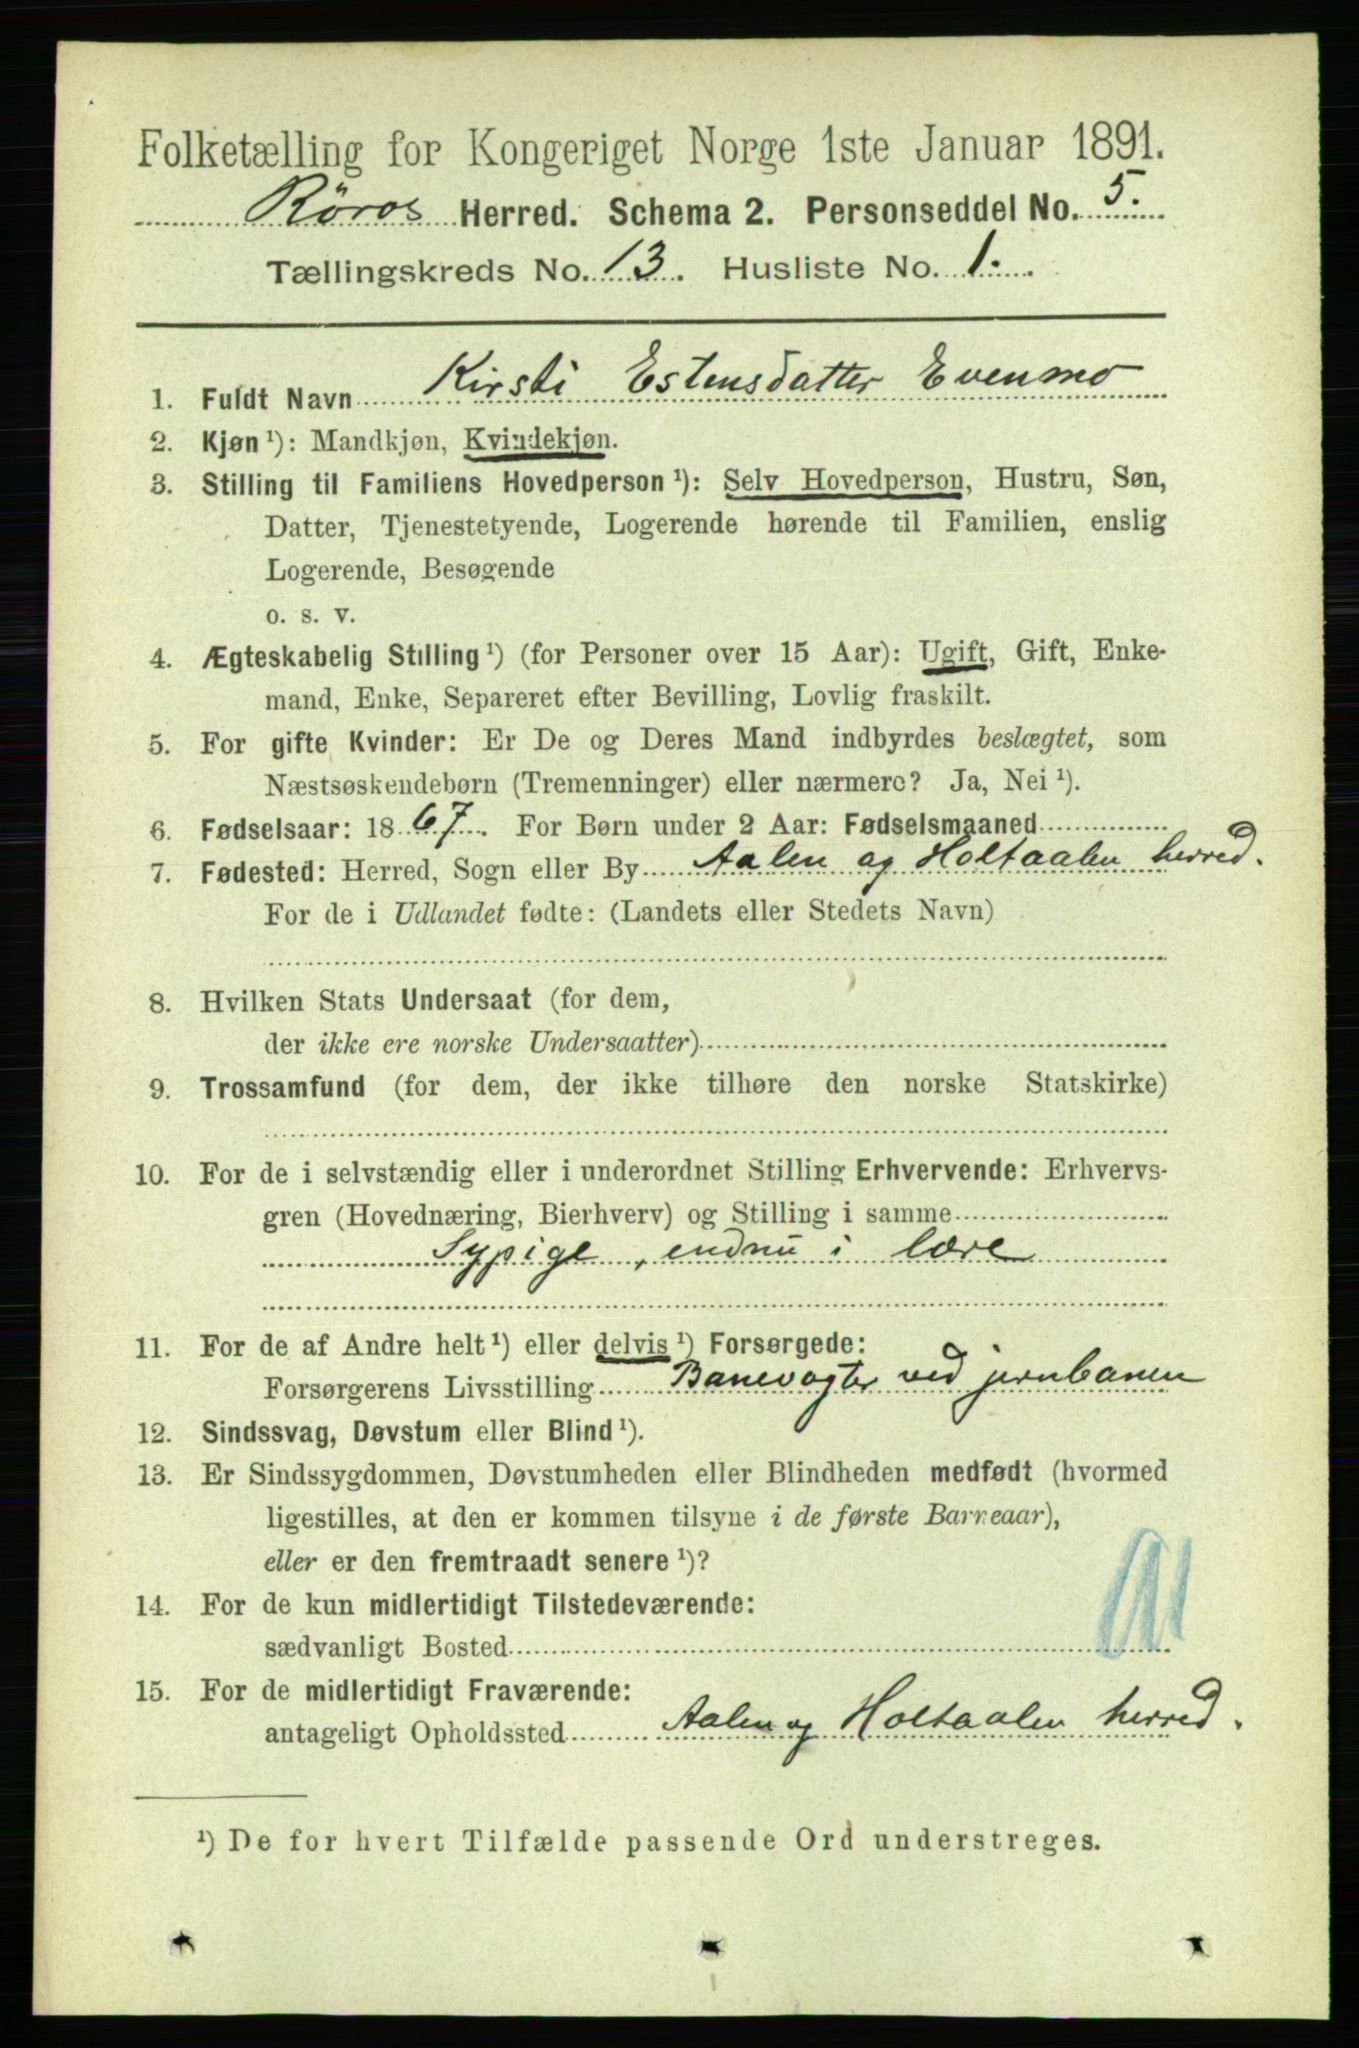 Folketælling for Kongeriget Norge 1ste Januar 1891.
Röros Herred. Schema 2. Personseddel No. 5.
Tællingskreds No. 13. Husliste No. 1.
1. Fuldt Navn Kirsti Estensdatter Evenmo
2. Kjøn ¹): Mandkjøn, Kvindekjøn.
3. Stilling til Familiens Hovedperson ¹): Selv Hovedperson, Hustru, Søn,
Datter, Tjenestetyende, Logerende hørende til Familien, enslig
Logerende, Besøgende
o. s. v.
4. Ægteskabelig Stilling ¹) (for Personer over 15 Aar): Ugift, Gift, Enke-
mand, Enke, Separeret efter Bevilling, Lovlig fraskilt.
5. For gifte Kvinder: Er De og Deres Mand indbyrdes beslægtet, som
Næstsøskendebørn (Tremenninger) eller nærmere? Ja, Nei ¹).
6. Fødselsaar: 1867. For Børn under 2 Aar: Fødselsmaaned
7. Fødested: Herred, Sogn eller By Aalen og Holtaalen herred.
For de i Udlandet fødte: (Landets eller Stedets Navn)
8. Hvilken Stats Undersaat (for dem,
der ikke ere norske Undersaatter)
9. Trossamfund (for dem, der ikke tilhøre den norske Statskirke)
10. For de i selvstændig eller i underordnet Stilling Erhvervende: Erhvervs-
gren (Hovednæring, Bierhverv) og Stilling i samme
Sypige, endnu i lære
11. For de af Andre helt ¹) eller delvis ¹) Forsørgede:
Forsørgerens Livsstilling Banevogter ved jernbanen
12. Sindssvag, Døvstum eller Blind ¹).
13. Er Sindssygdommen, Døvstumheden eller Blindheden medfødt (hvormed
ligestilles, at den er kommen tilsyne i de første Barneaar),
eller er den fremtraadt senere ¹)?
14. For de kun midlertidigt Tilstedeværende:
sædvanligt Bosted
15. For de midlertidigt Fraværende:
antageligt Opholdssted Aalen og Holtaalen herred.
¹) De for hvert Tilfælde passende Ord understreges.